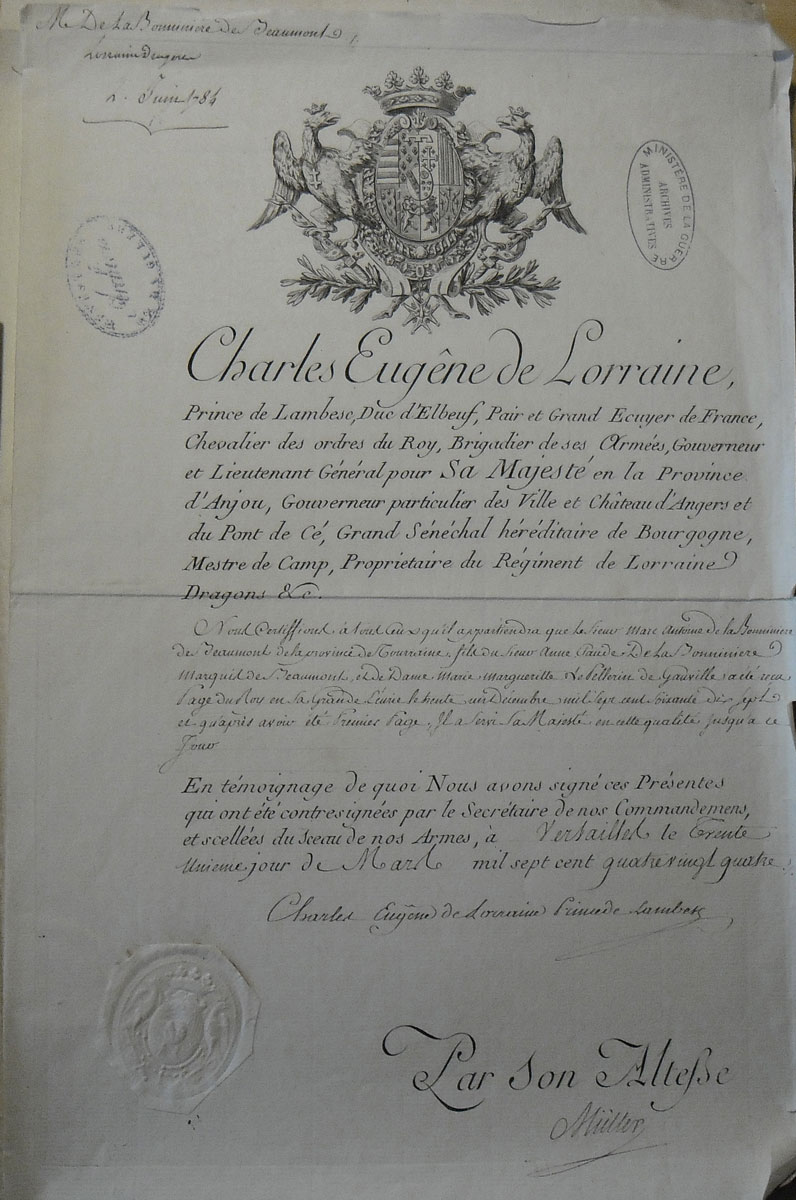 M. De La Bonniniere de Beaumont,
Lorraine Dragons
2. Juin 1784
MINISTÈRE DE LA GUERRE
ARCHIVES
ADMINISTRATIVES
Charles Eugêne de Lorraine,
Prince de Lambesc, Duc d'Elbeuf, Pair et Grand Ecuyer de France,
Chevalier des ordres du Roy, Brigadier de ses Armées, Gouverneur
et Lieutenant Général pour Sa Majesté en la Province
d'Anjou, Gouverneur particulier des Ville et Château d'Angers et
du Pont de Cé, Grand Sénéchal héréditaire de Bourgogne,
Mestre de Camp, Proprietaire du Régiment de Lorraine
Dragons &c.
Nous Certiffions à tous Ceux qu'il appartiendra que le Sieur Marc Antoine de la Bonniniere
de Beaumont de la province de Touraine, fils du Sieur Anne Claude De La Bonniniere
Marquis de Beaumont, et de Dame Marie Margueritte Le Pellerin de Gauville a été reçu
Page du Roy en Sa Grande Ecurie le trente un Décembre mil Sept cent Soixante dix Sept
et qu'après avoir été Premier Page, Il a Servi Sa Majesté en cette qualité Jusqu'à ce
Jour
En témoignage de quoi Nous avons signé ces Présentes
qui ont été contresignées par le Secrétaire de nos Commandemens,
et scellées du sceau de nos Armes, à Versailles le trente
Unieme jour de Mars mil sept cent quatre vingt quatre.
Charles Eugêne de Lorraine Prince de Lambesc,
Par Son Altesse
Müller